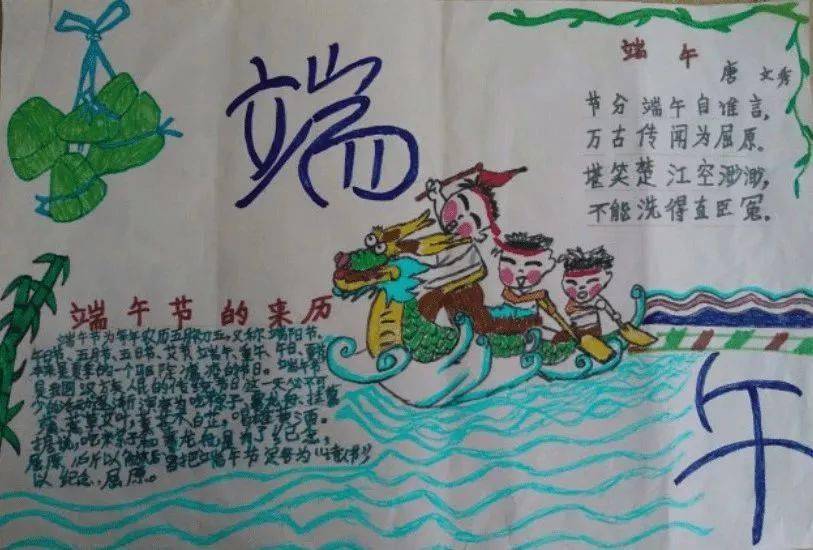 端
午
端 午
唐 文秀
节分端午自谁言,
万古传闻为屈原。
堪笑楚江空渺渺,
不能洗得直臣冤。
端午节的来历
端午节为每年农历五月初五,又称端阳节、
午日节、五月节、五日节、艾节、端午、重午、午日、夏节
本来是夏季的一个驱除瘟疫的节日。端午节
是我国汉族人民的传统节日这一天必不可
少的活动逐渐演变为吃粽子、赛龙舟、挂菖
蒲、蒿草、艾叶,薰苍术、白芷,喝雄黄酒。
据说,吃粽子和赛龙舟是为了纪念
屈原,所以解放后曾把端午节定名为“诗人节”
以纪念屈原。